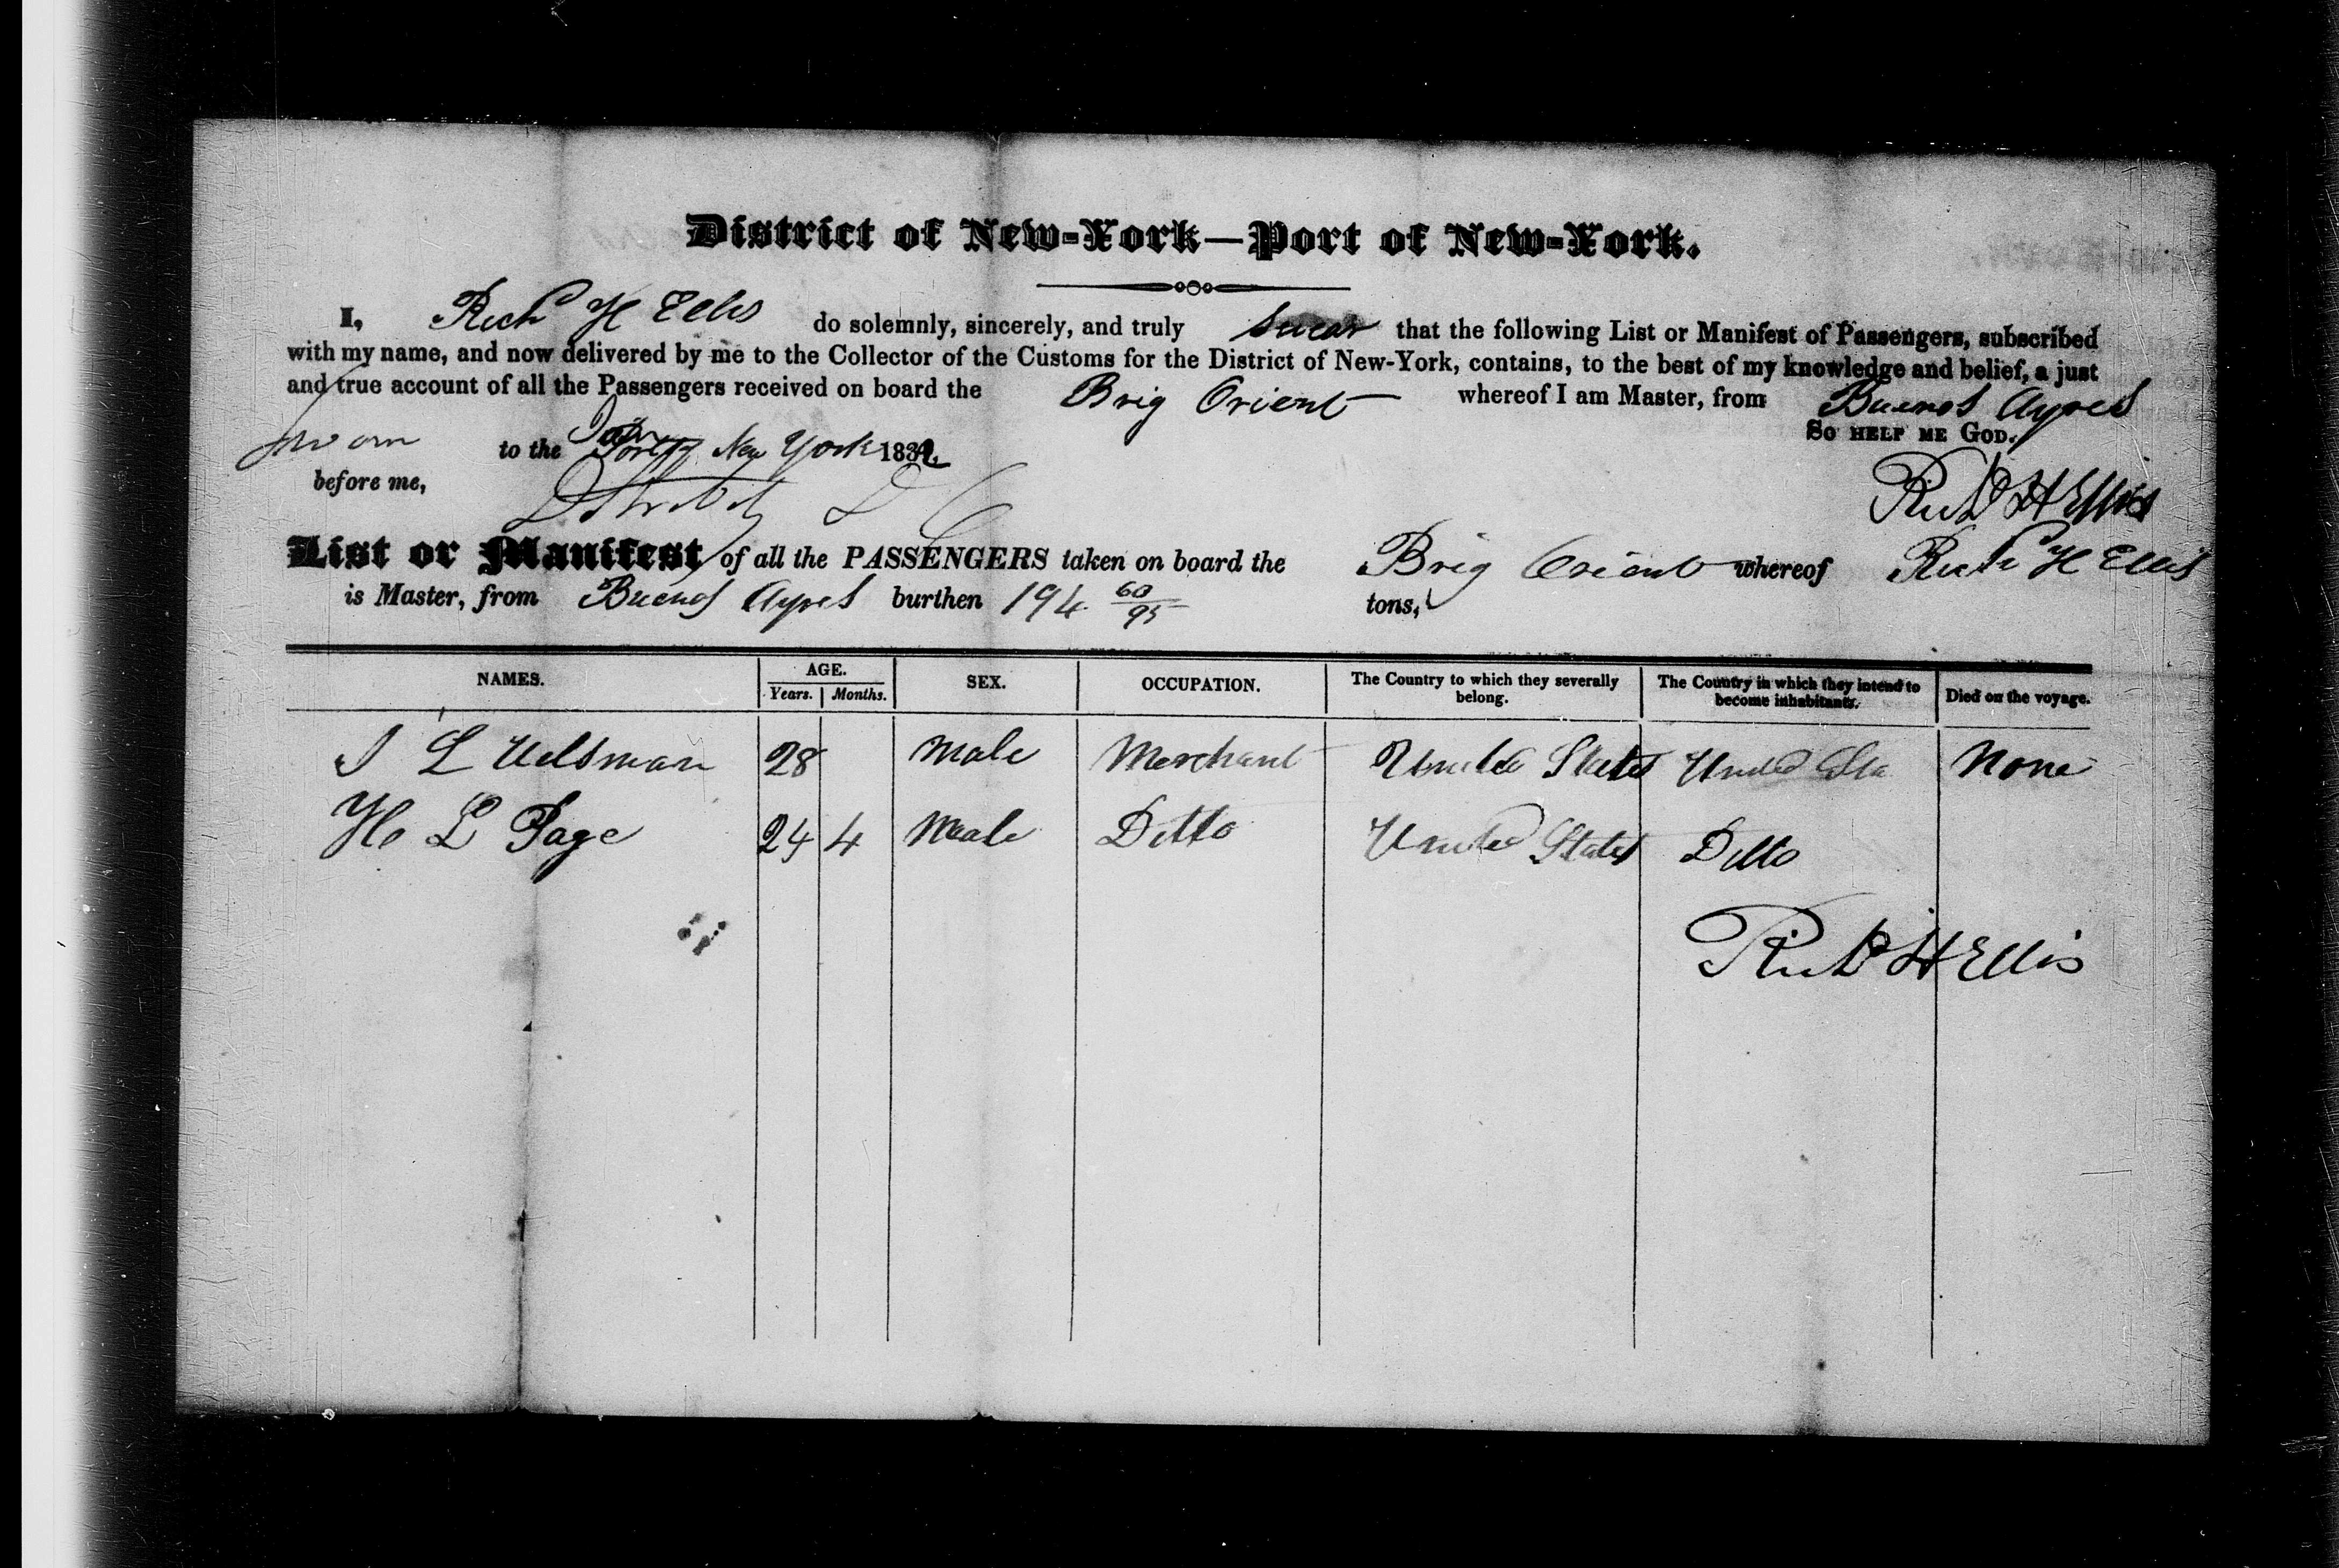 District of New-York—Port of New-York.
I, Richd H Ellis do solemnly, sincerely, and truly swear that the following List or Manifest of Passengers, subscribed
with my name, and now delivered by me to the Collector of the Customs for the District of New-York, contains, to the best of my knowledge and belief, a just
and true account of all the Passengers received on board the Brig Orient whereof I am Master, from Buenos Ayres
So help me God.
Sworn to the New York 183
before me,
Richd H Ellis
List or Manifest of all the PASSENGERS taken on board the Brig Orient whereof Richd H Ellis
is Master, from Buenos Ayres burthen 194 60/95 tons,
NAMES. AGE. Years. Months. SEX. OCCUPATION. The Country to which they severally belong. The Country in which they intend to become inhabitants. Died on the voyage.
L 28 Male Merchant United States United Sta None
H L Page 24 4 Male Ditto United States Ditto
Richd H Ellis